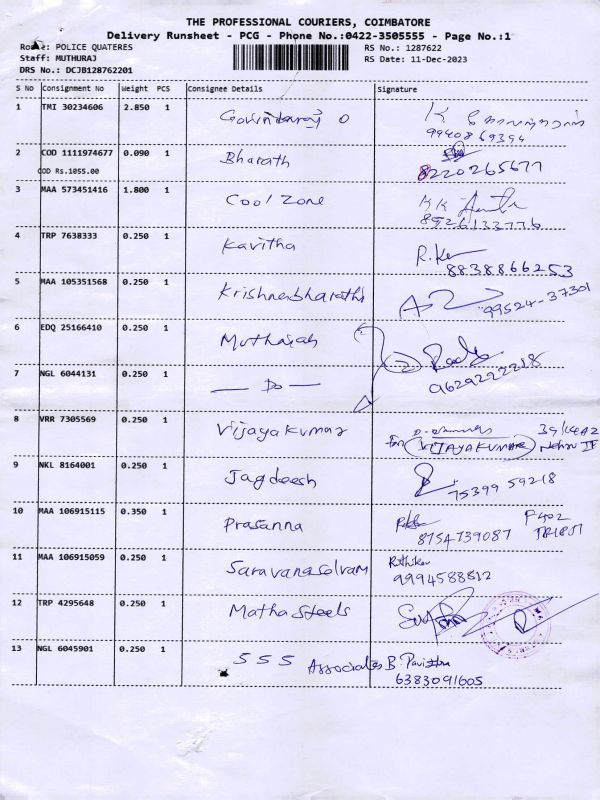 THE PROFESSIONAL COURIERS, COIMBATORE
Delivery Runsheet - PCG - Phone No.:0422-3505555 - Page No.:1
Route: POLICE QUATERES RS No.: 1287622
Staff: MUTHURAJ RS Date: 11-Dec-2023
DRS No.: DCJB128762201
S No Consignment No Weight PCS Consignee Details Signature
1 TMI 30234606 2.850 1 Govindaraj O K
9940869394
2 COD 1111974677 0.090 1 Bharath 8220265677
COD Rs.1055.00
3 MAA 573451416 1.800 1 Cool Zone KK
8926133776
4 TRP 7638333 0.250 1 Kavitha R.
8838866253
5 MAA 105351568 0.250 1 Krishnabharathi 99524-37301
6 EDQ 25166410 0.250 1 Muthaiah
7 NGL 6044131 0.250 1 — Do — 9629222218
8 VRR 7305569 0.250 1 Vijayakumar For VIJAYAKUMAR
9 NKL 8164001 0.250 1 Jagdeesh 75399 59218
10 MAA 106915115 0.350 1 Prasanna 8754739087 F402
11 MAA 106915059 0.250 1 Saravanaselvam Rithika
9994588812
12 TRP 4295648 0.250 1 Matha Steels
13 NGL 6045901 0.250 1 555 Associates B. Pavithra
6383091605